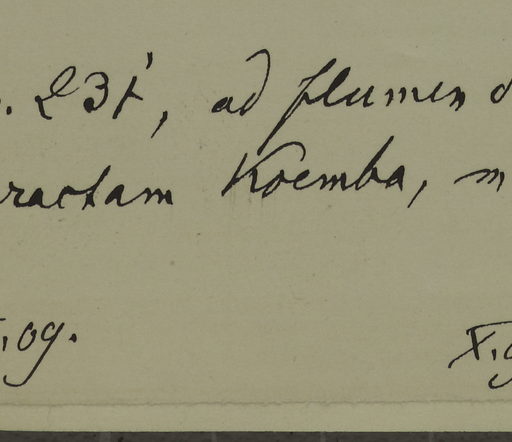 . 237, ad flumen
ractam Koemba, m
.09. X.9